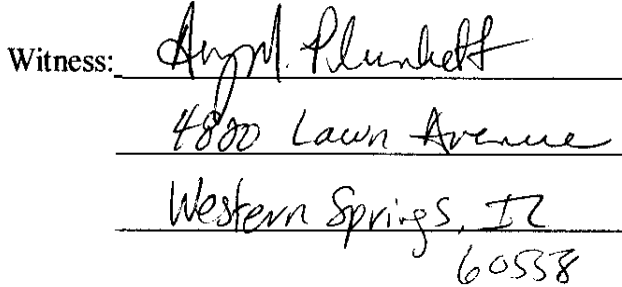 Witness: Amy M. Plunkett
4800 Lawn Avenue
Western Springs, IL
60558